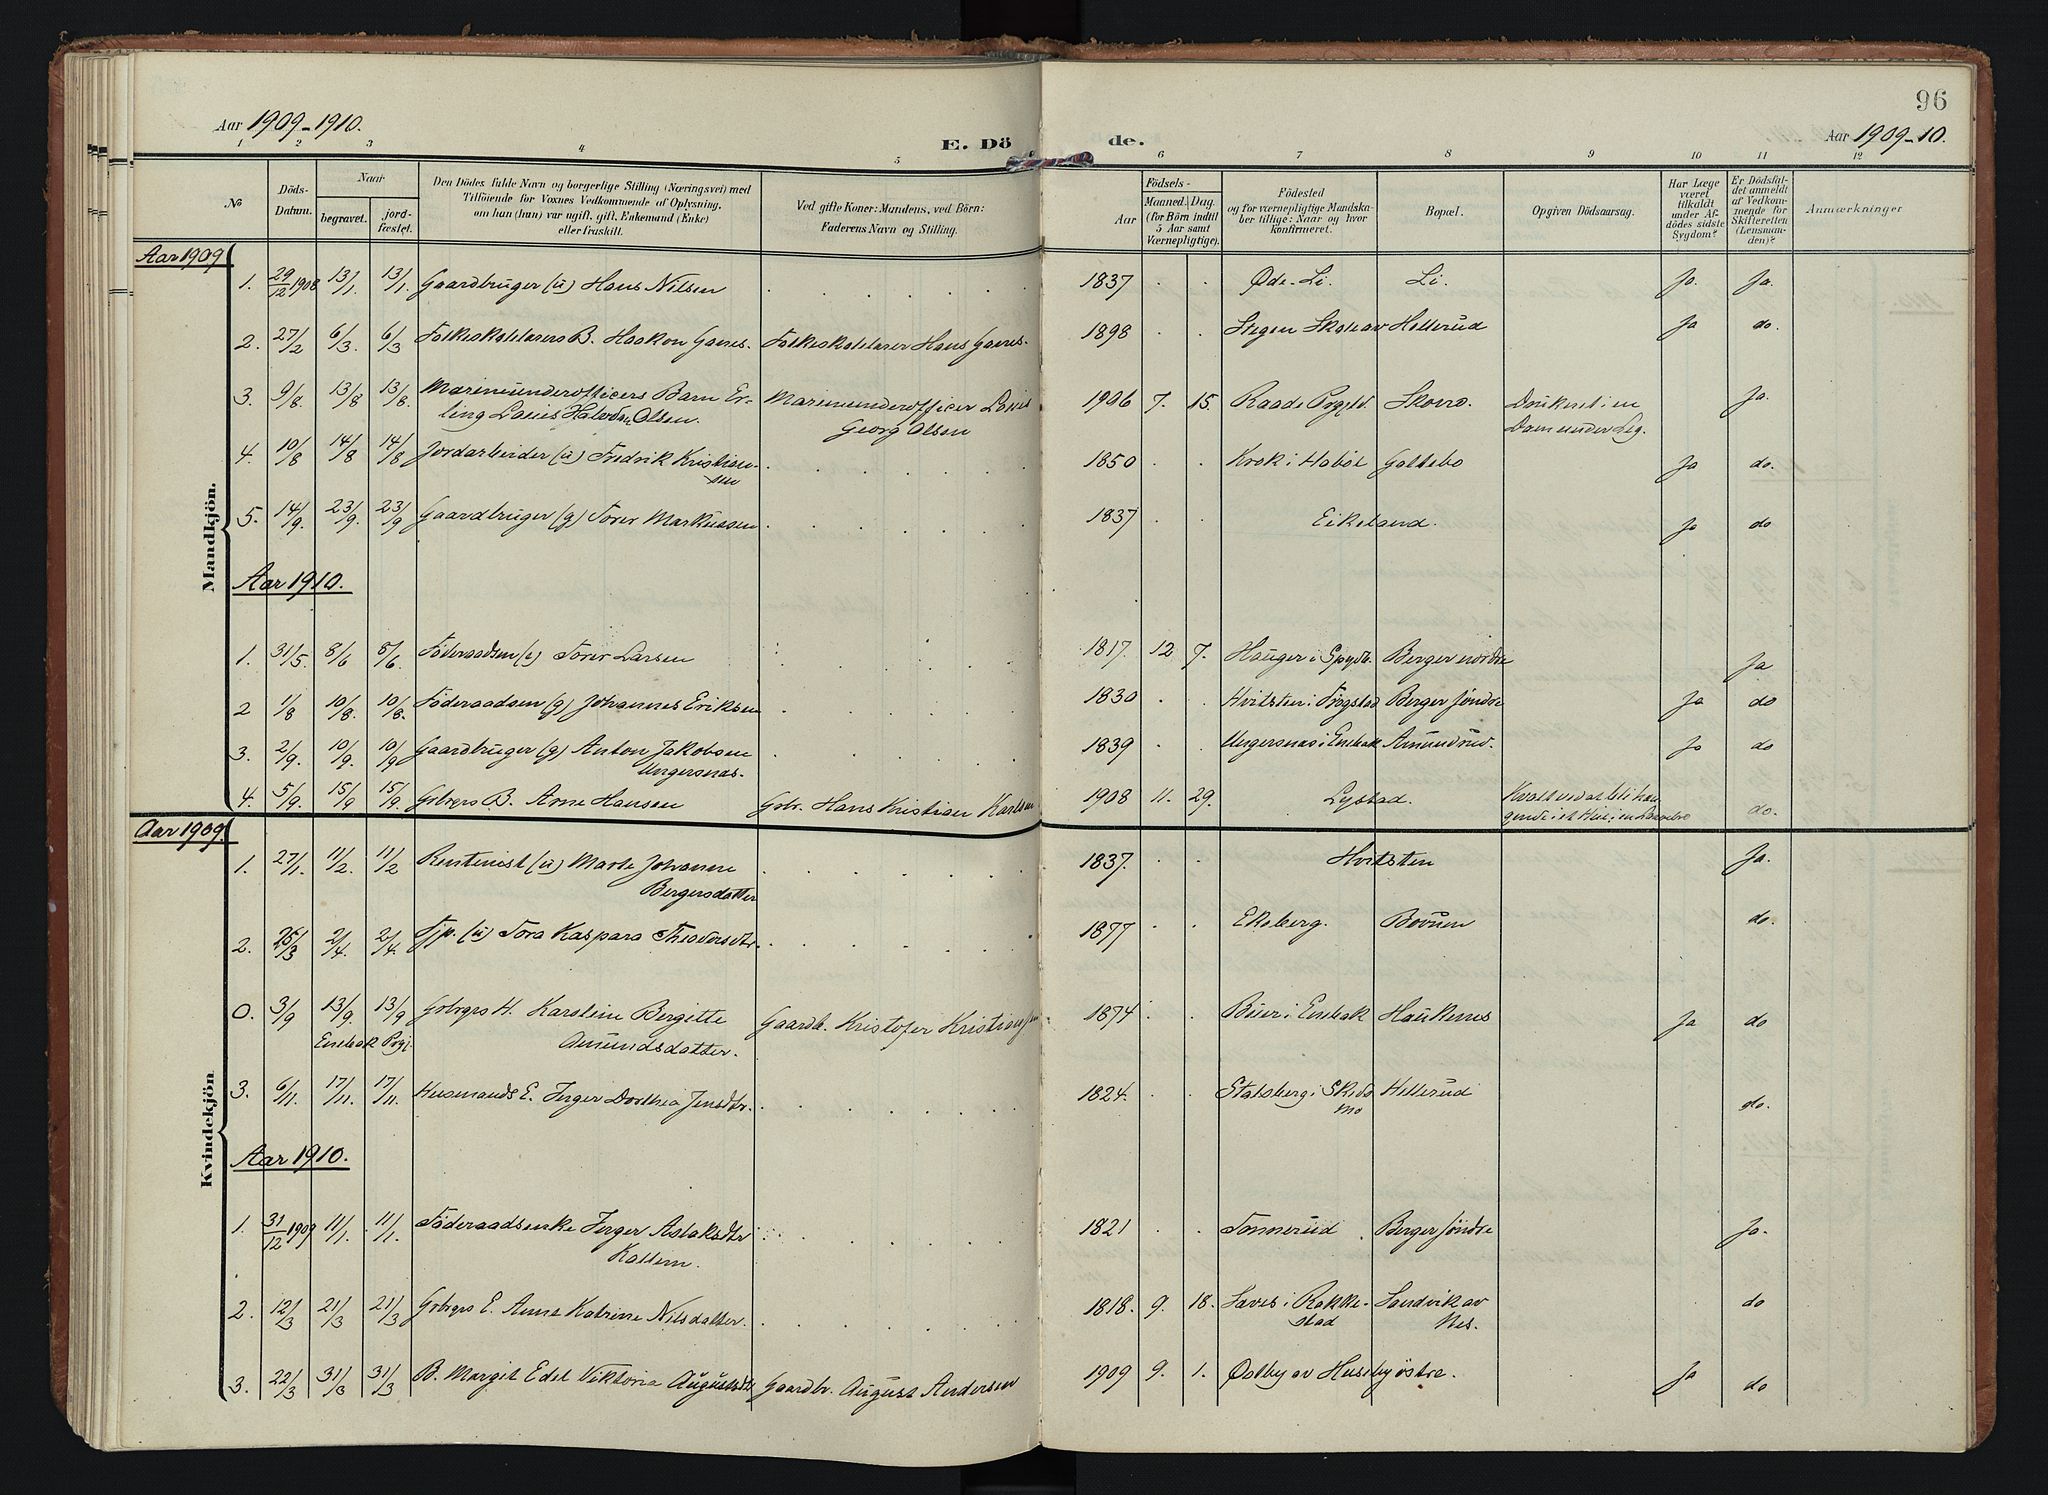 96
Aar 1909-1910.
E. Dö
de.
Aar 1909-10.
1 2 3 4 5 6 7 8 9 10 11 12
№
Döds-Datum.
Naar
begravet.
jord-fæstet.
Den Dödes fulde Navn og borgerlige Stilling (Næringsvei) med
Tilföiende for Voxnes Vedkommende af Oplysning,
om han (hun) var ugift, gift, Enkemand (Enke)
eller fraskilt.
Ved gifte Koner: Mandens, ved Börn:
Faderens Navn og Stilling.
Födsels-
Aar
Maaned. Dag.
(for Börn indtil
5 Aar samt
Værnepligtige).
Födested
og for værnepligtige Mandska-
ber tillige: Naar og hvor
konfirmeret.
Bopæl.
Opgiven Dödsaarsag.
Har Læge
været
tilkaldt
under Af-
dödes sidste
Sygdom?
Er Dödsfal-
det anmeldt
af Vedkom-
mende for
Skifteretten
(Lensman-
den)?
Anmærkninger
Mandkjön.
Aar 1909
1. 29/12 1908 13/1. 13/1. Gaardbruger (u) Hans Nilsen 1837 Øde-Li. Li. Ja. Ja.
2. 27/2 6/3. 6/3 B. Haakon Hans 1898 Skole av Hellerud Ja do.
3. 9/8. 13/8 13/8. Marineunderofficers Barn Er- Marineunderofficer 1906 7. 15. Raade Skovro. Druknet i en Ja.
ling Halvdan Olsen. Georg Olsen Dam under Leg.
4. 10/8 14/8 14/8 Jordarbeider (u) Fredrik Kristian- 1850 Krok i Hobøl Ja do.
sen
5. 14/9. 23/9. 23/9 Gaardbruger (g) Torer Markussen 1837 Eikeland. Ja do
Aar 1910.
1. 31/5. 8/6 8/6. Föderaadsm Torer Larsen 1817. 12 7. Hauger i Spydb. Berger nordre Ja
2 1/8 10/8. 10/8. Föderaadsm (g) Johannes Eriksen 1830 Hvitsten i Trøgstad Berger søndre Ja do
3. 2/9. 10/9. 10/9 Gaardbruger (g) Anton Jakobsen 1839 Ungersnæs i Enebak Amundrud. Ja do
Ungersnæs.
4. 5/9. 15/9 15/9. Gbrgrs B. Arne Hansen Gbr. Hans Kristian Karlsen 1908 11. 29. Lystad. Kvalt ved at bli hæn- do.
gende i et
Kvindekjön
Aar 1909.
1. 27/1. 11/2. 11/2 (u) Marte Johanne 1837. Hvitsten Ja.
Bergersdatter
2. 25/3 2/4. 2/4. Tjp. (u) Tora Kaspara Theodorsdtr. 1877 Ekeberg. do.
0. 3/9 13/9. 13/9 Gbrgrs H. Karoline Bergitte Gaardb. Kristofer Kristiansen 1874 i Enebak Haukenes Ja do
Enebak Prgj. Amundsdatter.
3. 6/11. 17/11. 17/11. Husmands E. Inger Dorthea Jensdtr. 1824. i Skibt- Hellerud do.
mo
Aar 1910.
1. 31/12 1909 11/1. 11/1. Föderaadsenke Inger Aslaksdtr 1821 Tonnerud Berger søndre Ja.
2. 12/3 21/3 21/3 Gbrgrs E. Anne Katrine Nilsdatter. 1818. 9. 18. i Rakke- Sandvik av do
stad Nes.
3. 22/3 31/3 31/3 B. Margit Edel Viktoria Augustsdtr Gaardbr. August Andersen 1909 9. 1. Østby av Huseby østre. Ja do